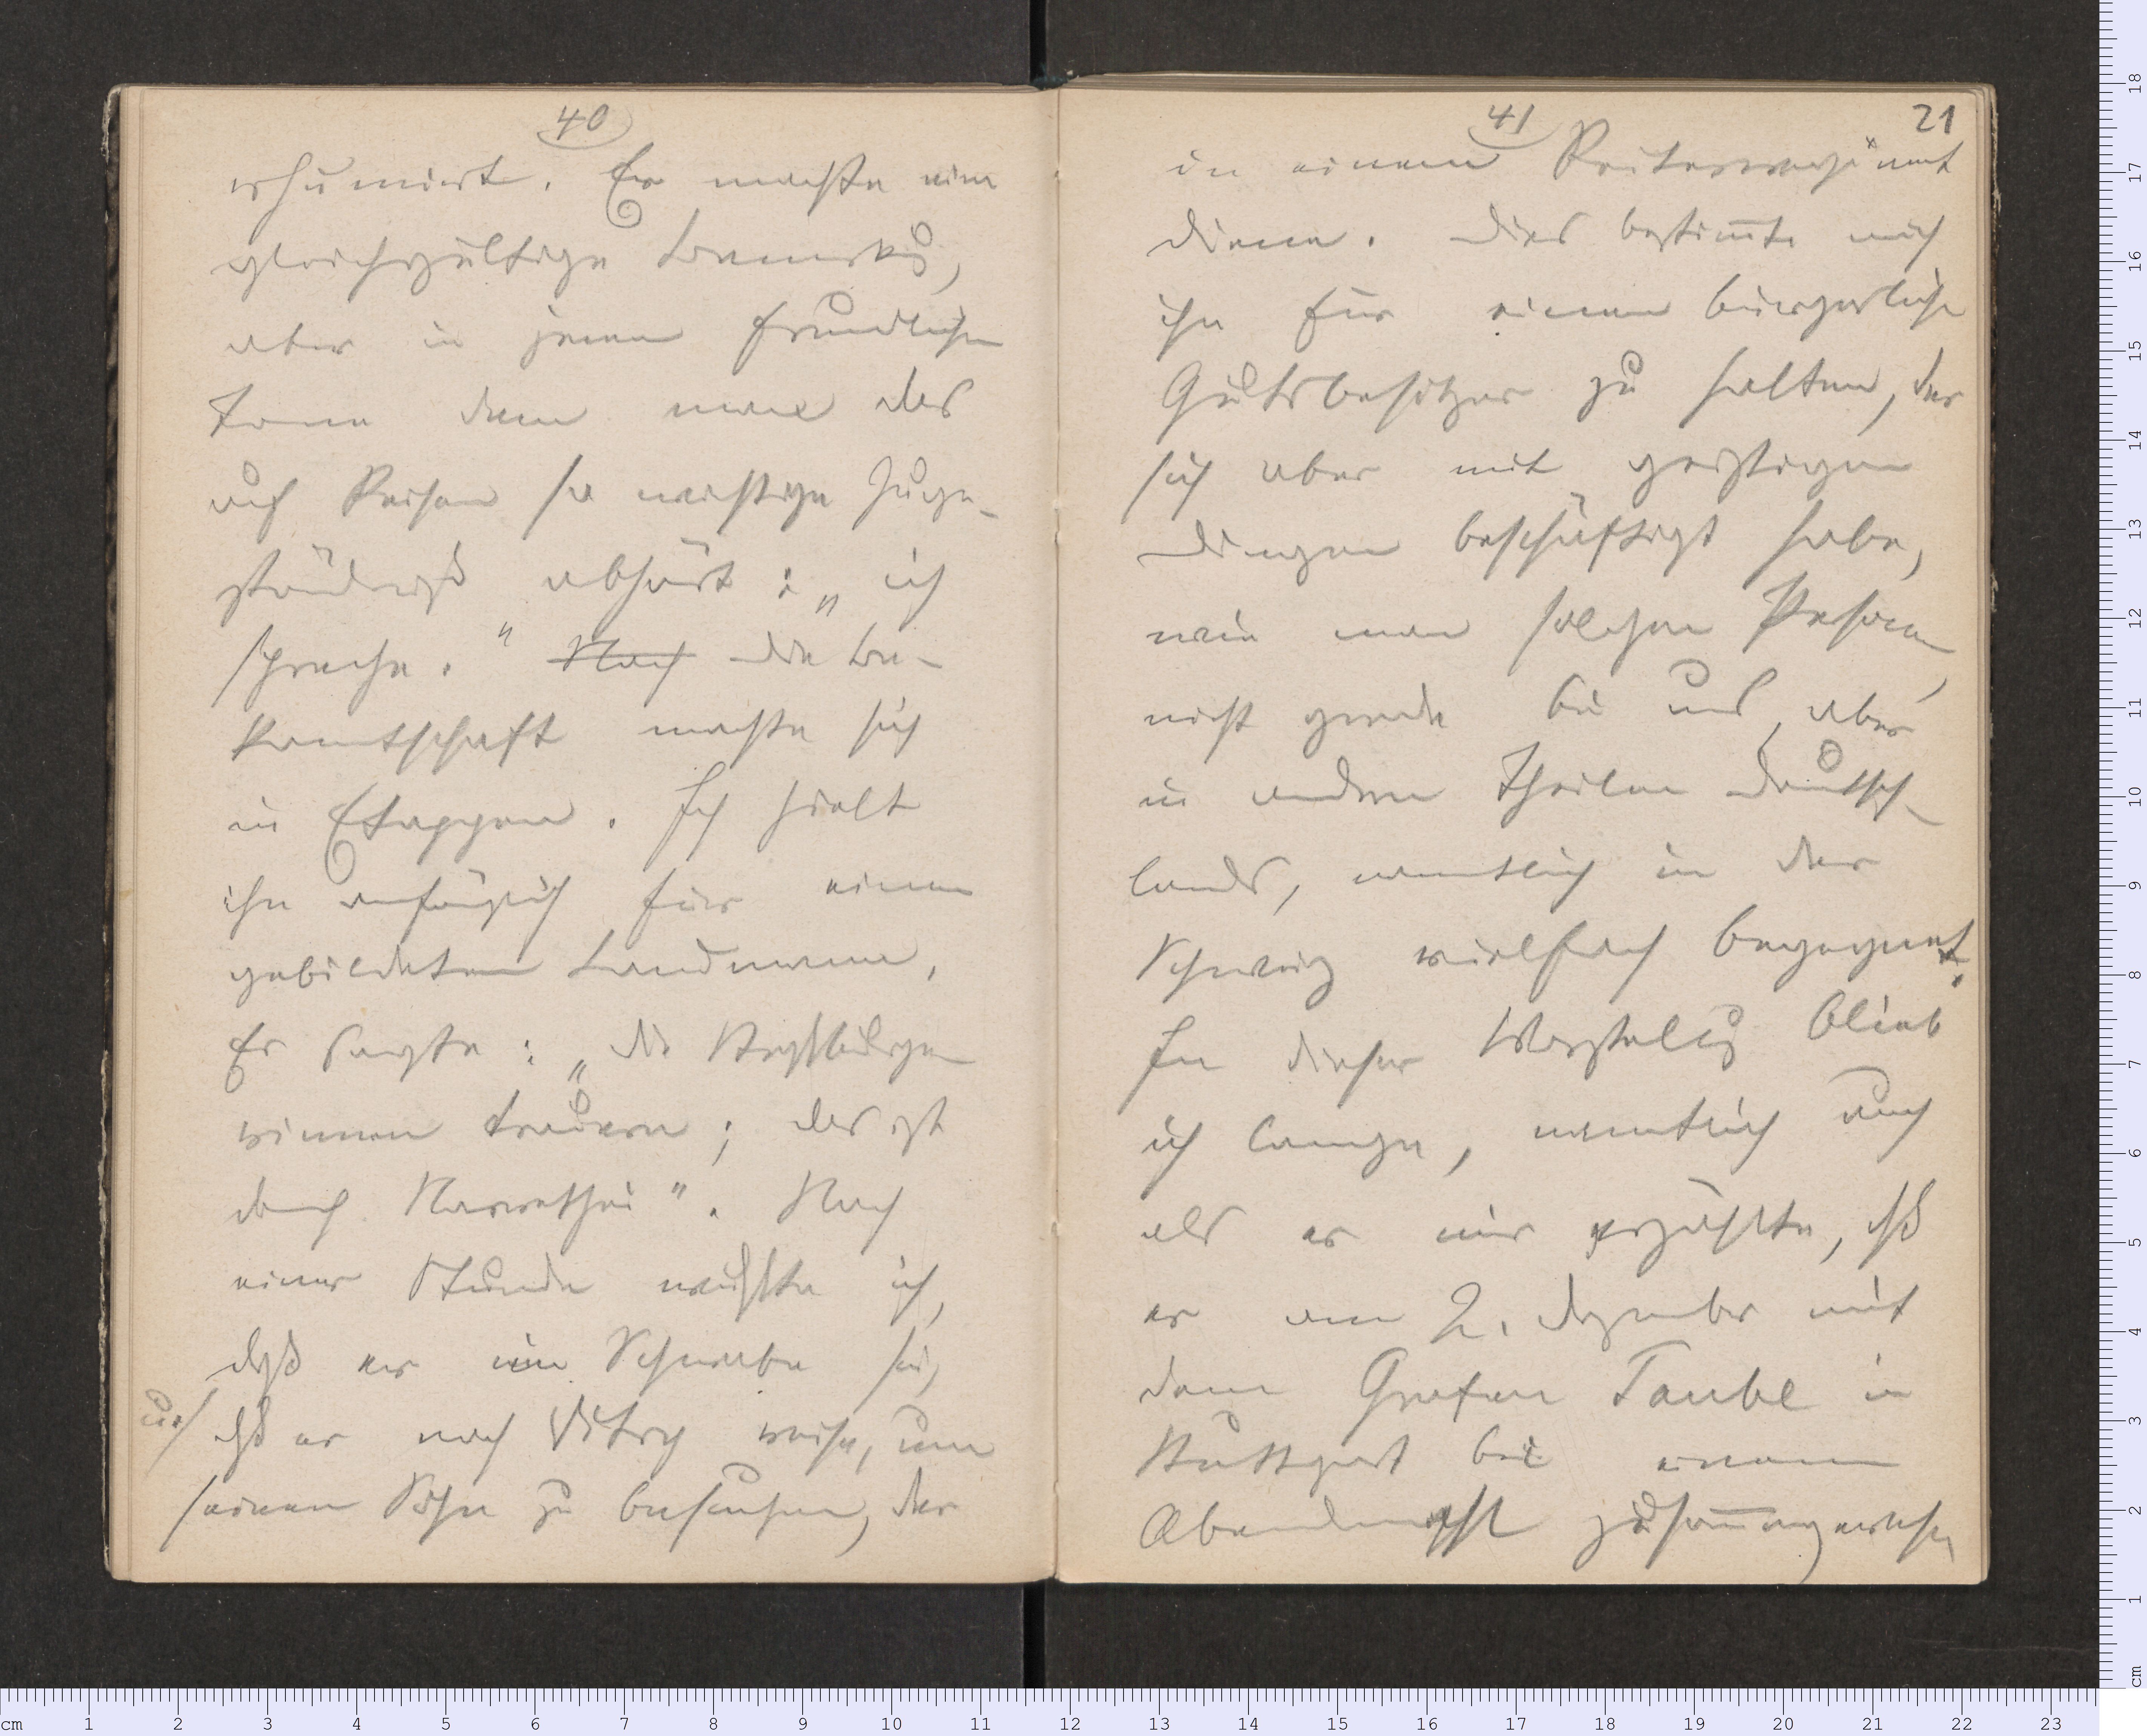 40
exhumiert. Er machte eine
gleichgültige Bemerkung,
aber in jenem freundlichen
Tone dem man das
auf Reisen so wichtige Zuge-
ständniß abhört: „ich
spreche.“ Nach die Be-
kanntschaft machte sich
in Etappen. Ich hielt
ihn anfänglich für einen
gebildeten Landmann.
Er sagte: „die Straßburger
trauern; das ist
doch Narrethei“. Nach
einer Stunde wußte ich,
daß er ein Schwabe sei,
u. daß er nach Vitry reise, um
seinen Sohn zu besuchen, der
41
21
in einem Reiterregiment
diene. Dies bestimmte mich
ihn für einen bürgerlichen
Gutsbesitzer zu halten, der
sich aber mit geistigen
Dingen beschäftigt habe,
wie man solchen Personen,
nicht gerade bei uns, aber
in andern Theilen Deutsch-
lands, namentlich in der
Schweiz vielfach begegnet.
In dieser Vorstellung blieb
ich lange, namentlich auch
als er mir erzählte, daß
er am 2. Dezember mit
dem Grafen Taube in
Stuttgart bei einem
Abendmahl zusammengewesen